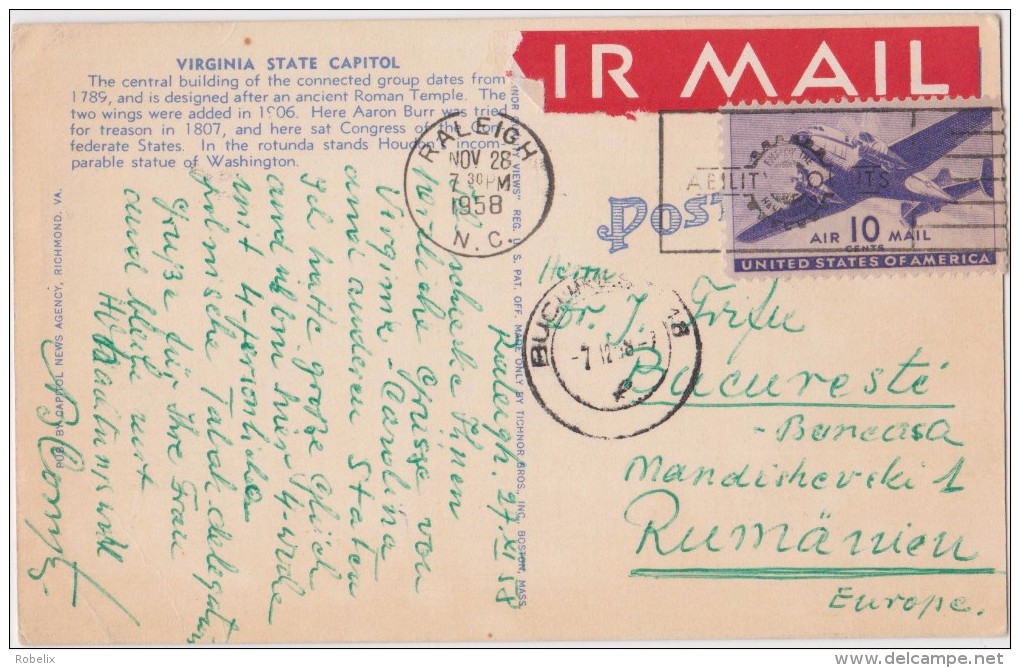 VIRGINIA STATE CAPITOL
The central building of the connected group dates from
1789, and is designed after an ancient Roman Temple. The
two wings were added in 1906. Here Aaron Burr was tried
for treason in 1807, and here sat Congress of the Con-
federate States. In the rotunda stands Houdon's incom-
parable statue of Washington.
IR MAIL
RALEIGH
NOV 28
7 30 PM
1958
N. C.
AIR 10 MAIL
CENTS
UNITED STATES OF AMERICA
POST
PUB. BY CAPITOL NEWS AGENCY, RICHMOND, VA.
VIEWS" REG. U. S. PAT. OFF. MADE ONLY BY TICHNOR BROS., INC., BOSTON, MASS.
Raleigh. 27.XI 58
schicke Ihnen
herzliche Grüsse von
Virginia - Carolina
und anderen Staten
Ich hatte große Glück
und bin hier 4-
mit 4-
polnische Tabakdelegation
Grüße für Ihre Frau
und bleibe mit
Herrn
Dr. J.
Bucureste
- Baneasa
Mandishevski 1
Rumänien
Europe.
BUC 18
-7 12 58
Robelix
delcampe.net